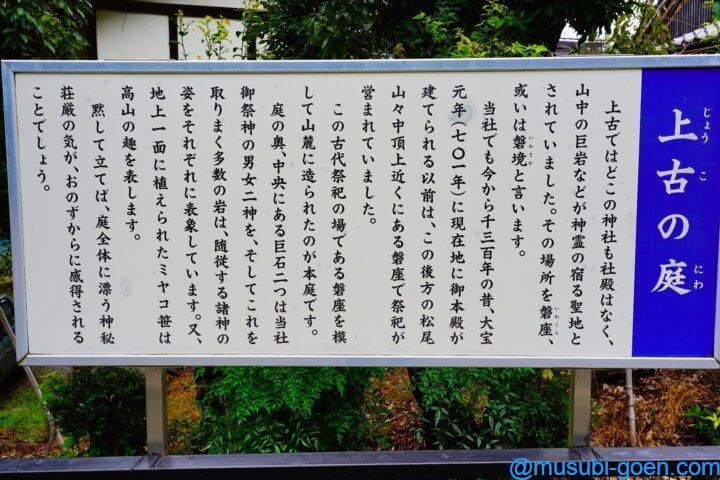 上古の庭
じょうこ
にわ
上古ではどこの神社も社殿はなく、
山中の巨岩などが神霊の宿る聖地と
されていました。その場所を磐座、
いわくら
或いは磐境と言います。
いわさか
当社でも今から千三百年の昔、大宝
元年(七〇一年)に現在地に御本殿が
建てられる以前は、この後方の松尾
山々中頂上近くにある磐座で祭祀が
営まれていました。
この古代祭祀の場である磐座を模
して山麓に造られたのが本庭です。
庭の奥、中央にある巨石二つは当社
御祭神の男女二神を、そしてこれを
取りまく多数の岩は、随従する諸神の
姿をそれぞれに表象しています。又、
地上一面に植えられたミヤコ笹は
高山の趣を表します。
黙して立てば、庭全体に漂う神秘
荘厳の気が、おのずからに感得される
ことでしょう。
@musubi-goen.com